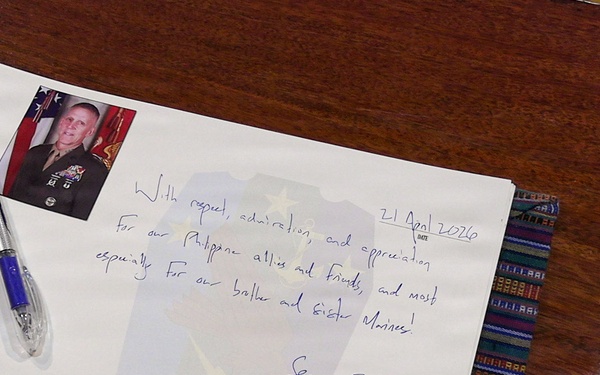 21 April 2026
DATE
With respect, admiration, and appreciation
For our Philippine allies and friends, and most
especially for our brother and sister Marines!